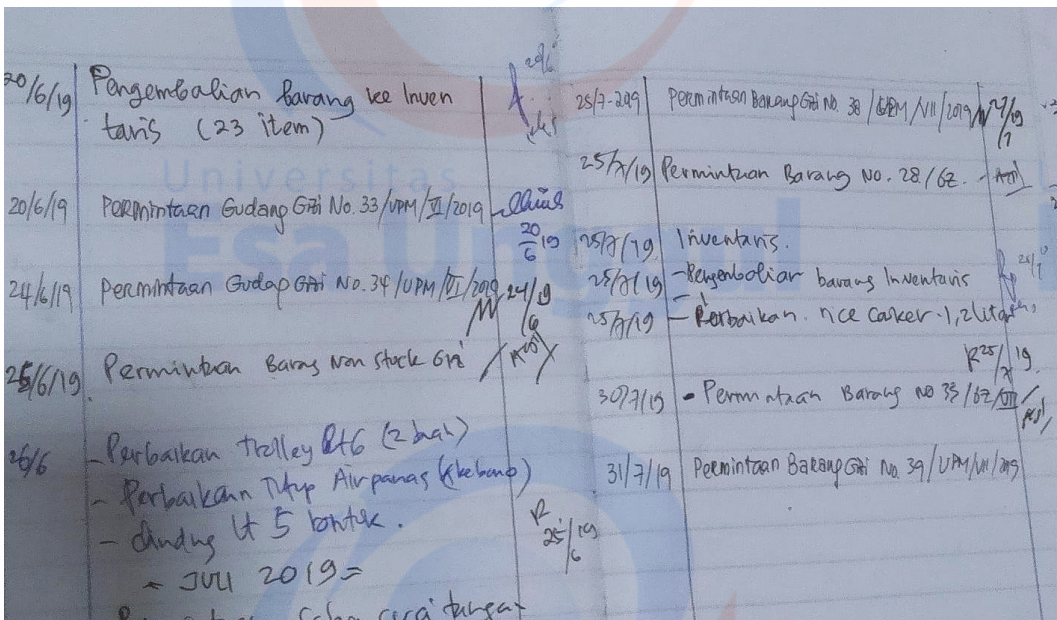 20/6/19 Pengembalian barang ke Inven
taris (23 item)
20/6
20/6/19 Permintaan Gudang Gizi No. 33/UPM/VI/2019
20/6 19
24/6/19 Permintaan Gudang Gizi No. 34/UPM/VI/2019 24/6/19
25/6/19 Permintaan Barang Non Stock Gizi
26/6 - Perbaikan Trolley Lt 6 (2 buah)
- Perbaikan Tutup Air panas
- dinding Lt 5 bontok.
R 25/6/19
= JULI 2019 =
25/7-2019 Permintaan Barang Gizi No. 38/UPM/VII/2019
25/7/19 Permintaan Barang No. 28/GZ.
25/7/19 Inventaris.
25/7/19 - Pengembalian barang Inventaris
25/7/19 - Perbaikan rice cooker 1,2 liter
R 25/7/19
30/7/19 - Permintaan Barang No 33/GZ/VII
31/7/19 Permintaan Barang Gizi No. 39/UPM/VII/2019
Universitas
Esa Unggul